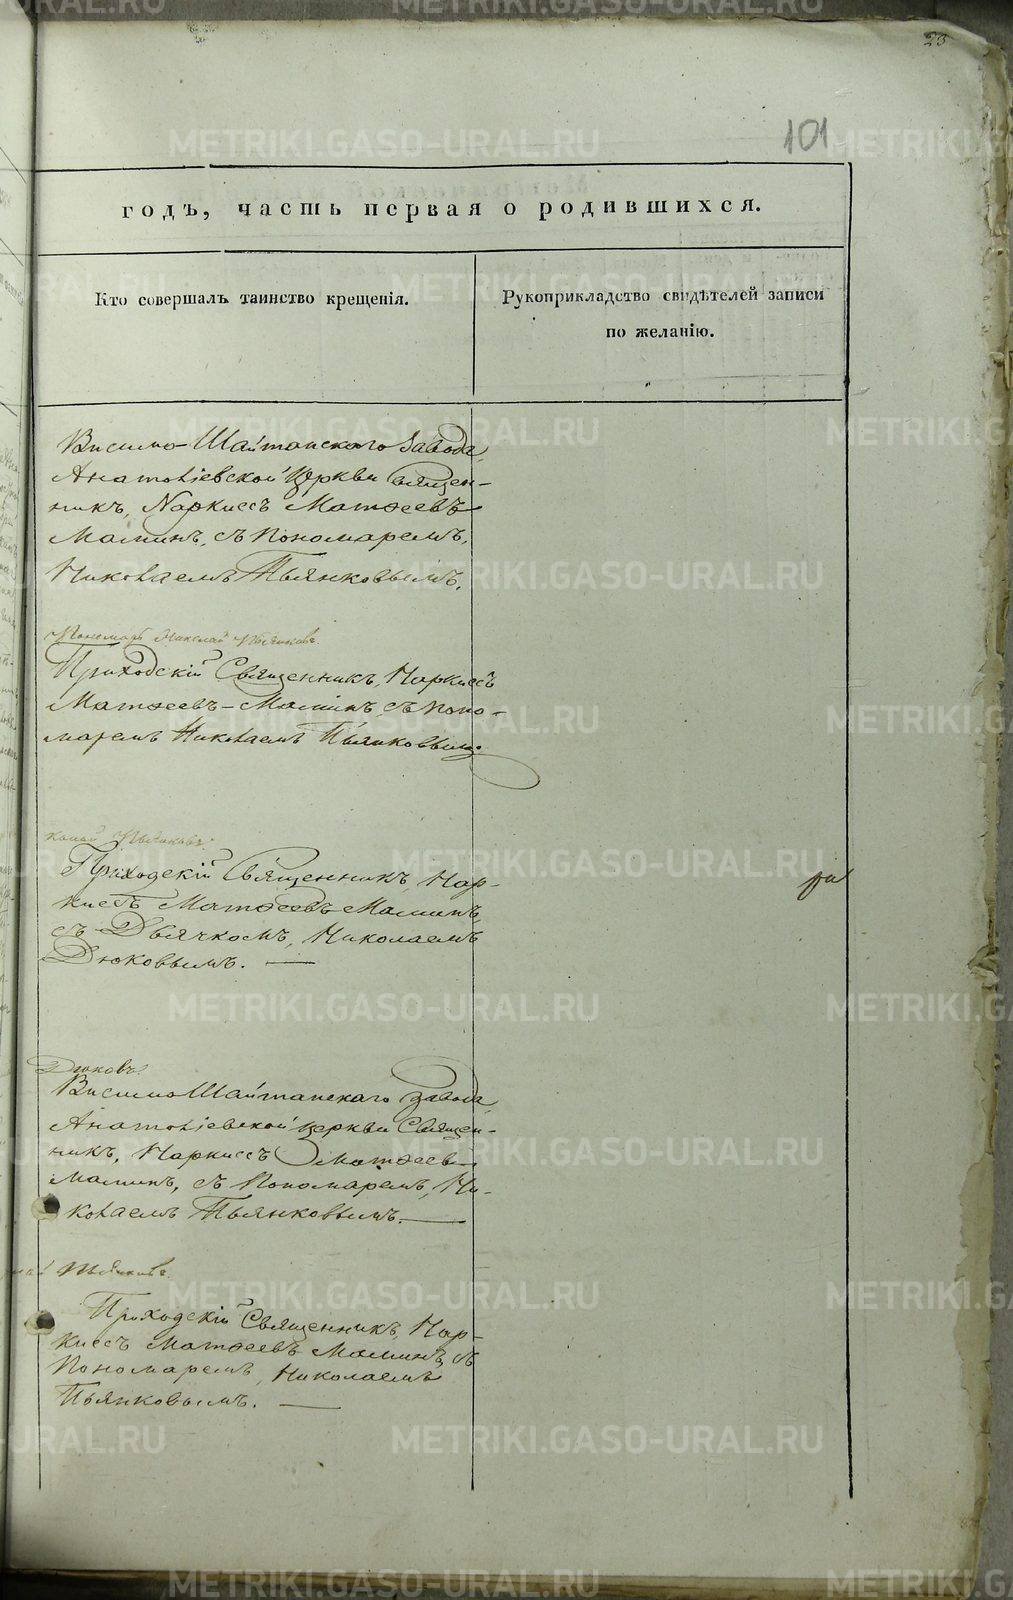 23
101
годъ, часть первая о родившихся.
Кто совершалъ таинство крещенія.
Рукоприкладство свидѣтелей записи
по желанію.
Висимо-Шайтанскаго Завода,
Анатоліевской Церкви Священ-
никъ, Наркиссъ Матѳеевъ
Маминъ, съ Пономаремъ,
Николаемъ Пьянковымъ.
Пономарь Николай Пьянковъ.
Приходскій Священникъ, Наркиссъ
Матѳеевъ-Маминъ, съ Поно-
маремъ Николаемъ Пьянковымъ.
колай Пьянковъ.
Приходскій Священникъ, Нар-
киссъ Матѳеевъ Маминъ,
съ Дьячкомъ, Николаемъ
Дюковымъ. —
Дюковъ.
Висимо Шайтанскаго Завода,
Анатоліевской церкви Священ-
никъ, Наркиссъ Матѳеевъ
Маминъ, съ Пономаремъ, Ни-
колаемъ Пьянковымъ. —
Пьянковъ.
Приходскій Священникъ, Нар-
киссъ Матѳеевъ Маминъ, съ
Пономаремъ, Николаемъ
Пьянковымъ. —
METRIKI.GASO-URAL.RU